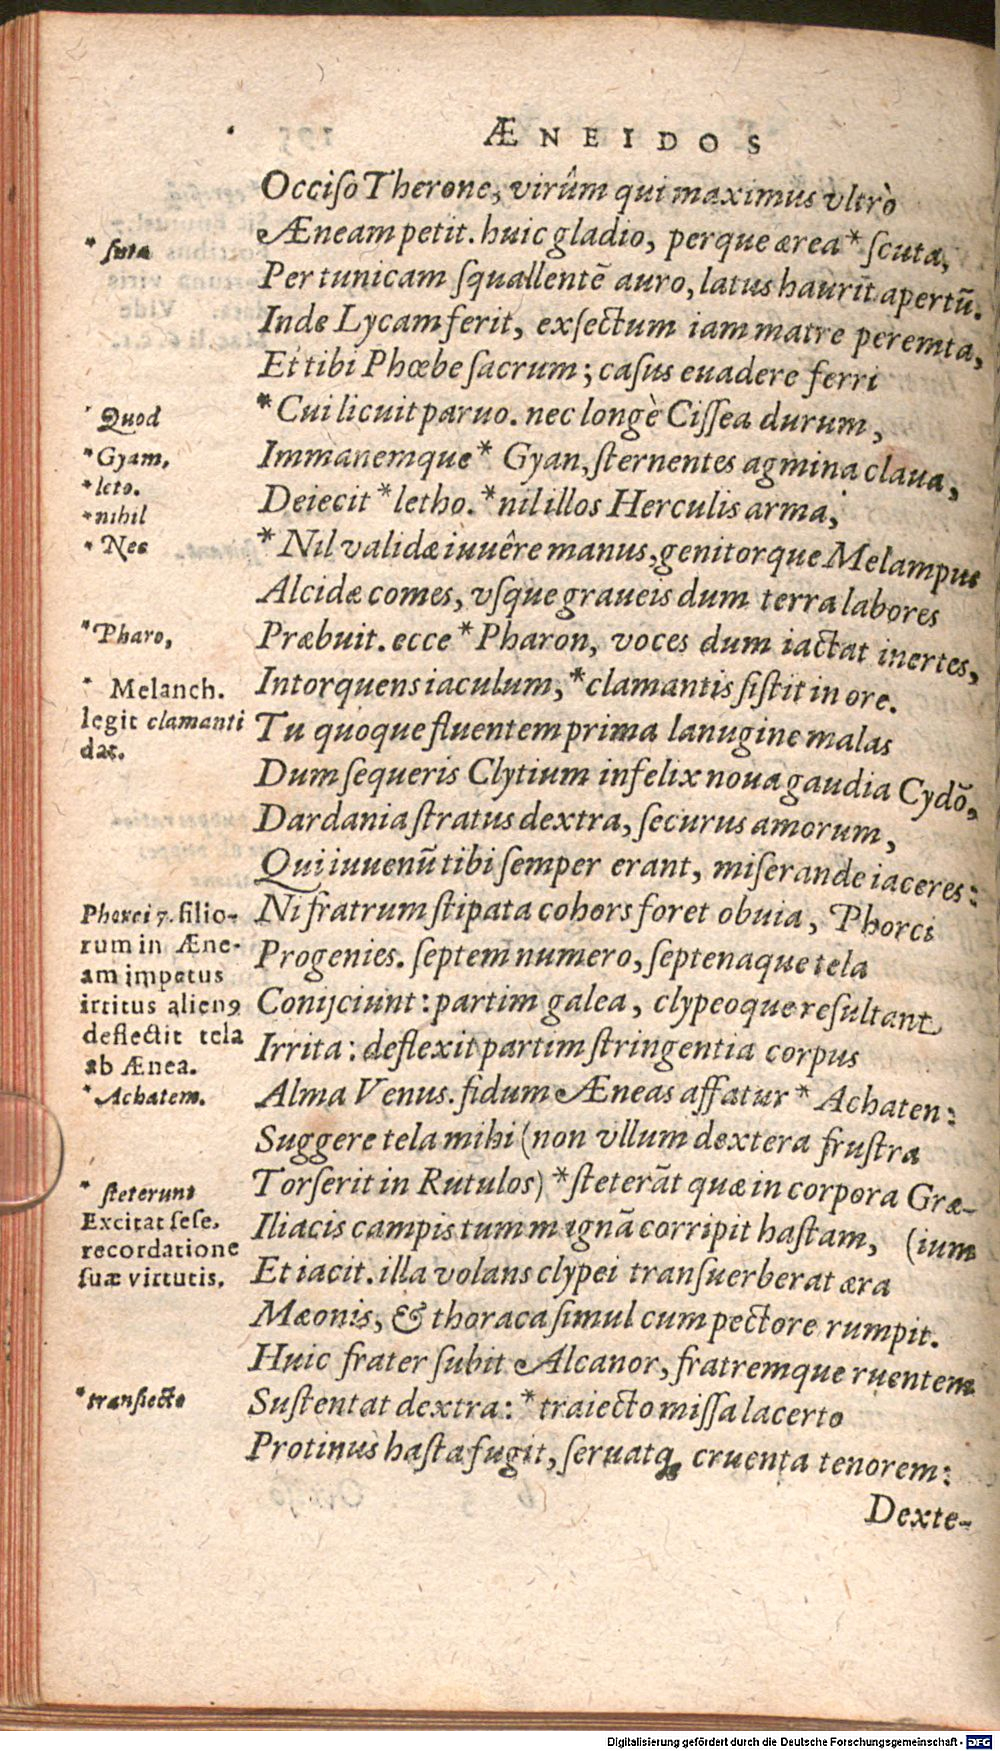 ÆNEIDOS
Occiſo Therone, virûm qui maximus vltrò
Æneam petit. huic gladio, perque ærea * ſcuta,
Per tunicam ſquallentē auro, latus haurit apertū.
Inde Lycam ferit, exſectum iam matre peremta,
Et tibi Phœbe ſacrum; caſus euadere ferri
* Cui licuit paruo. nec longè Ciſſea durum,
Immanemque * Gyan, ſternentes agmina claua,
Deiecit * letho. * nil illos Herculis arma,
* Nil validæ iuuêre manus, genitorque Melampus
Alcidæ comes, vſque graueis dum terra labores
Præbuit. ecce * Pharon, voces dum iactat inertes,
Intorquens iaculum, * clamantis ſiſtit in ore.
Tu quoque fluentem prima lanugine malas
Dum ſequeris Clytium infelix noua gaudia Cydō,
Dardania ſtratus dextra, ſecurus amorum,
Qui iuuenū tibi ſemper erant, miſerande iaceres:
Ni fratrum ſtipata cohors foret obuia, Phorci
Progenies. ſeptem numero, ſeptenaque tela
Conijciunt: partim galea, clypeoque reſultant
Irrita: deflexit partim ſtringentia corpus
Alma Venus. fidum Æneas affatur * Achaten:
Suggere tela mihi (non vllum dextera fruſtra
Torſerit in Rutulos) * ſteterāt quæ in corpora Græ-
Iliacis campis tum magnā corripit haſtam, (ium
Et iacit. illa volans clypei tranſuerberat æra
Mæonis, & thoraca ſimul cum pectore rumpit.
Huic frater ſubit Alcanor, fratremque ruentem
Suſtentat dextra: * traiecto miſſa lacerto
Protinus haſta fugit, ſeruatq; cruenta tenorem:
Dexte-
* ſuta
* Quod
* Gyam,
* leto.
* nihil
* Nec
* Pharo,
* Melanch.
legit clamanti
dat.
Phorci 7. filio-
rum in Æne-
am impetus
irritus alienꝰ
deflectit tela
ab Ænea.
* Achatem.
* ſteterunt
Excitat ſeſe,
recordatione
ſuæ virtutis.
* tranſiecto
Digitalisierung gefördert durch die Deutsche Forschungsgemeinschaft - DFG